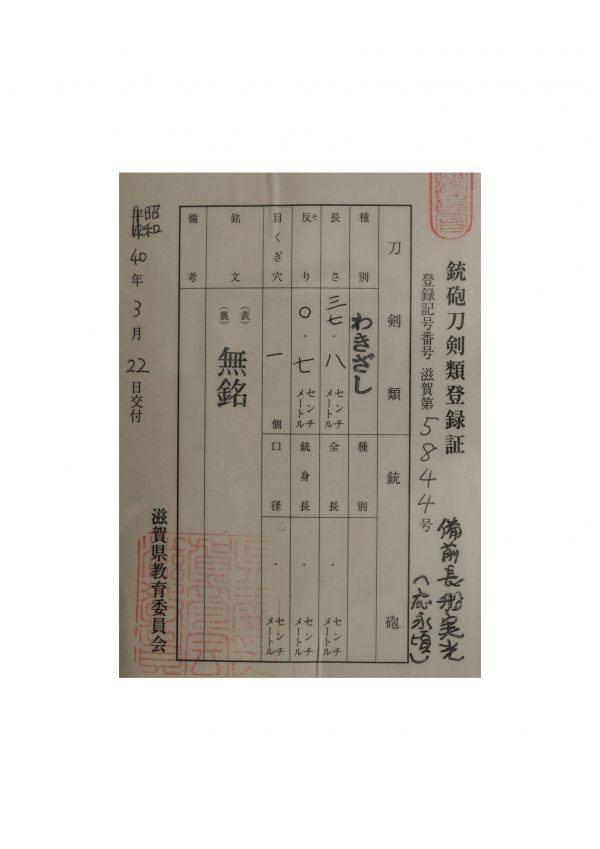 銃砲刀剣類登録証
登録記号番号 滋賀第5844号
備前長船実光
(応永頃)
刀剣類 銃砲
種別 わきざし 種別
長さ 三七・八 センチメートル 全長 ・ センチメートル
反り そ 〇・七 センチメートル 銃身長 ・ センチメートル
目くぎ穴 一 個 口径 ・ センチメートル
銘文 (表) 無銘
(裏)
備考
昭和 平成 40年3月22日交付
滋賀県教育委員会